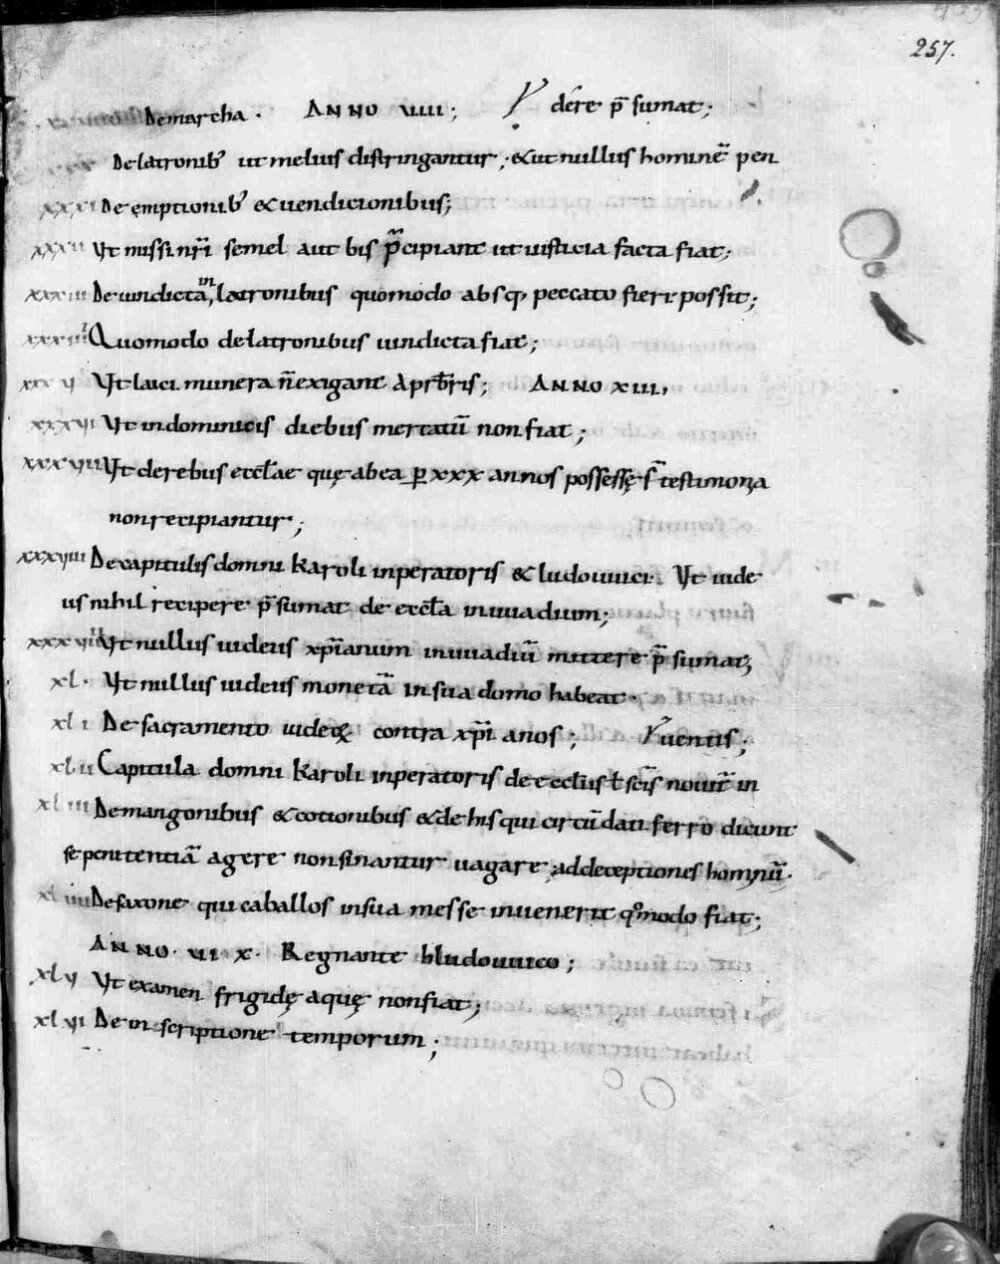 257.
De marcha . ANNO VIIII ; dere p̄sumat ;
De latronib; ut melius distringantur ; & ut nullus hominē pen
xxxi De emptionib; & uendicionibus ;
xxxii Ut missi nr̄i semel aut bis p̄cipiant ut iusticia facta fiat ;
xxxiii De uindicta in latronibus quomodo absq; peccato fieri possit ;
xxxiiii Quomodo de latronibus uindicta fiat ;
xxxv Ut laici munera n̄ exigant a prb̄ris ; ANNO XIII,
xxxvi Ut in dominicis diebus mercatū non fiat ;
xxxvii Ut de rebus eccl̄ae quę ab ea p̱ xxx annos possessę st̄ testimonia
non recipiantur ;
xxxviii De capitulis domni karoli inperatoris & ludouuici. Ut iude
us nihil recipere p̄sumat de eccl̄a in uuadium ;
xxxviiii Ut nullus iudeus xp̄ianum in uuadiū mittere p̄sumat ;
xl. Ut nullus iudeus monetā in sua domo habeat.
xli De sacramento iudeoꝝ contra xp̄ianos ; uentis ;
xlii Capitula domni karoli inperatoris de eccl̄iis t̄ sc̄is nouit̄ in
xliii De mangonibus & cotionibus & de his qui circū dati ferro dicunt
se penitentiā agere non sinantur uagare ad deceptiones hominū.
xliiii De saxone qui caballos in sua messe inuenerit qōmodo fiat ;
ANNO . VI X . Regnante hludouuico ;
xlv Ut examen frigidę aquę non fiat ;
xlvi De inscriptione temporum ;